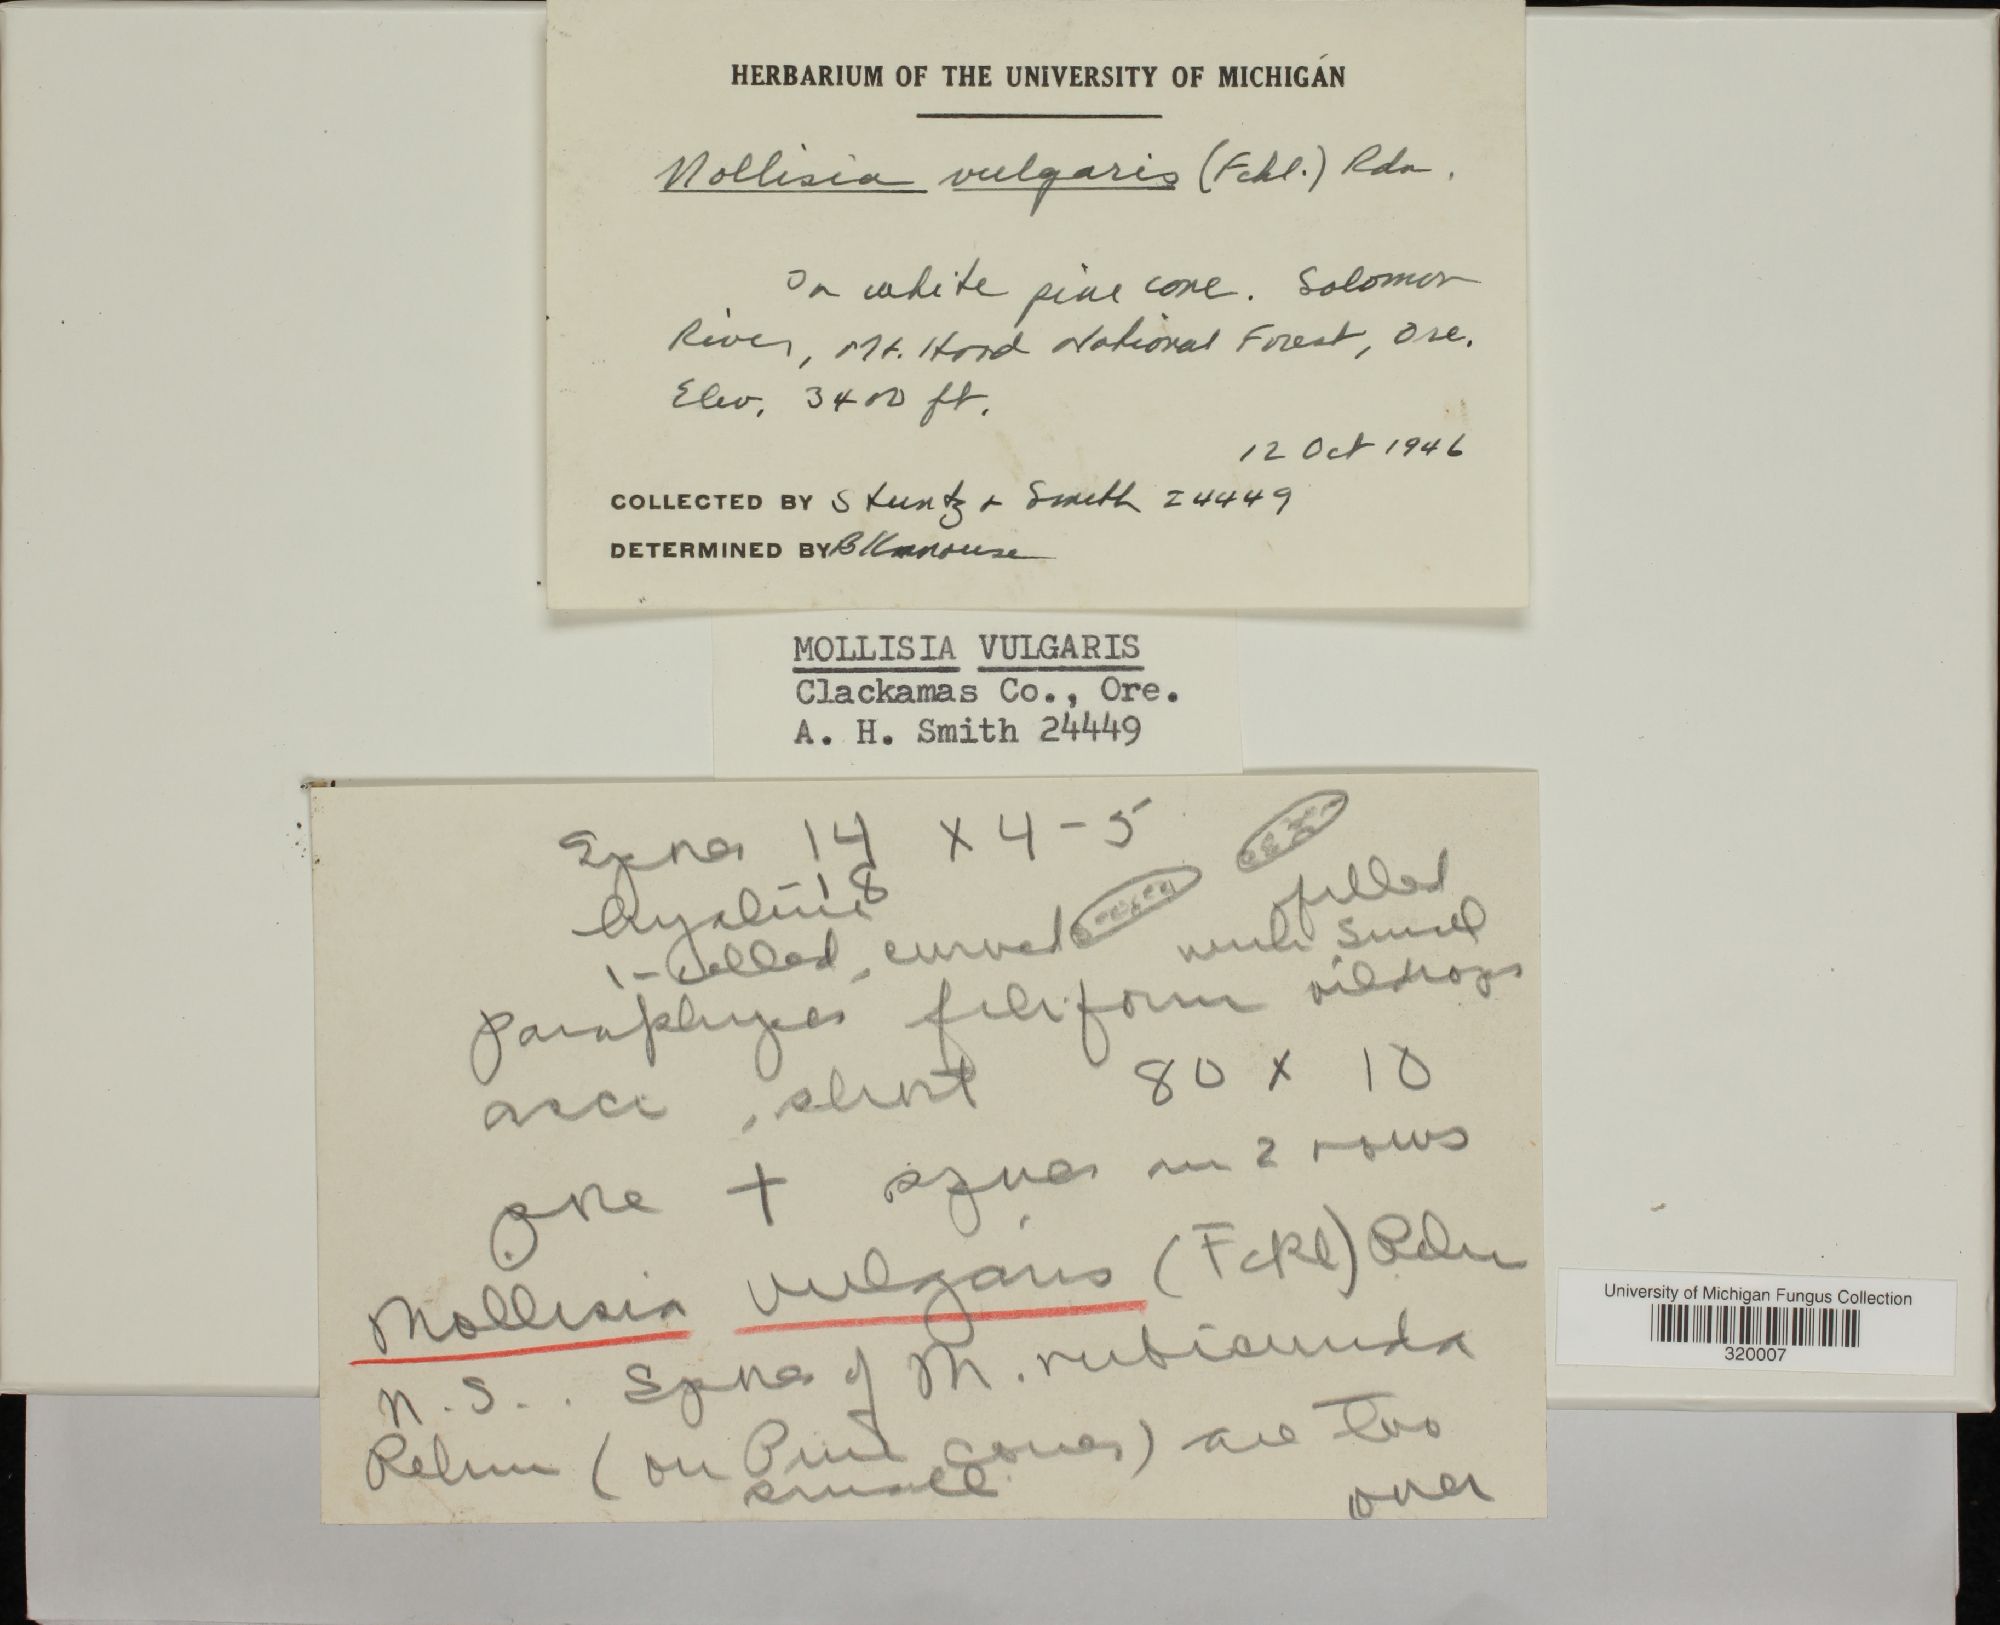 HERBARIUM OF THE UNIVERSITY OF MICHIGAN
Mollisia vulgaris (Fckl.) Rdn.
On white pine cone. Solomon
River, Mt. Hood National Forest, Ore.
Elev. 3400 ft.
12 Oct 1946
COLLECTED BY Stuntz + Smith 24449
DETERMINED BY B Kanouse
MOLLISIA VULGARIS
Clackamas Co., Ore.
A. H. Smith 24449
Spores 14 x 4-5
-18
hyaline
1-celled, curved
filled
with small
oildrops
paraphyses filiform
asci, short 80 x 10
pore + spores in 2 rows
Mollisia vulgaris (Fckl) Rdn
n.s.. Spores of M. rubicunda
Rehm (on Pine cones) are too
small
over
University of Michigan Fungus Collection
320007